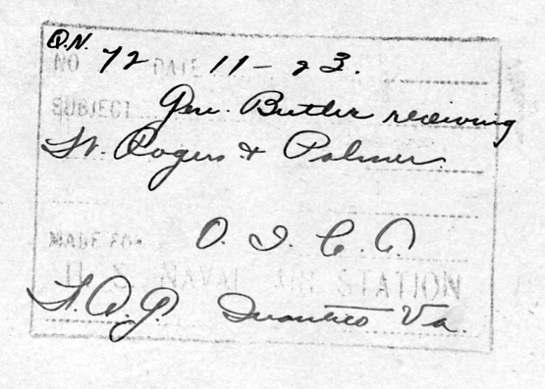 Q.N.
NO 72 DATE 11-23.
SUBJECT Gen. Butler receiving
Lt. Rogers & Palmer.
MADE FOR O. I. C. A.
U.S. NAVAL AIR STATION
Quantico Va.